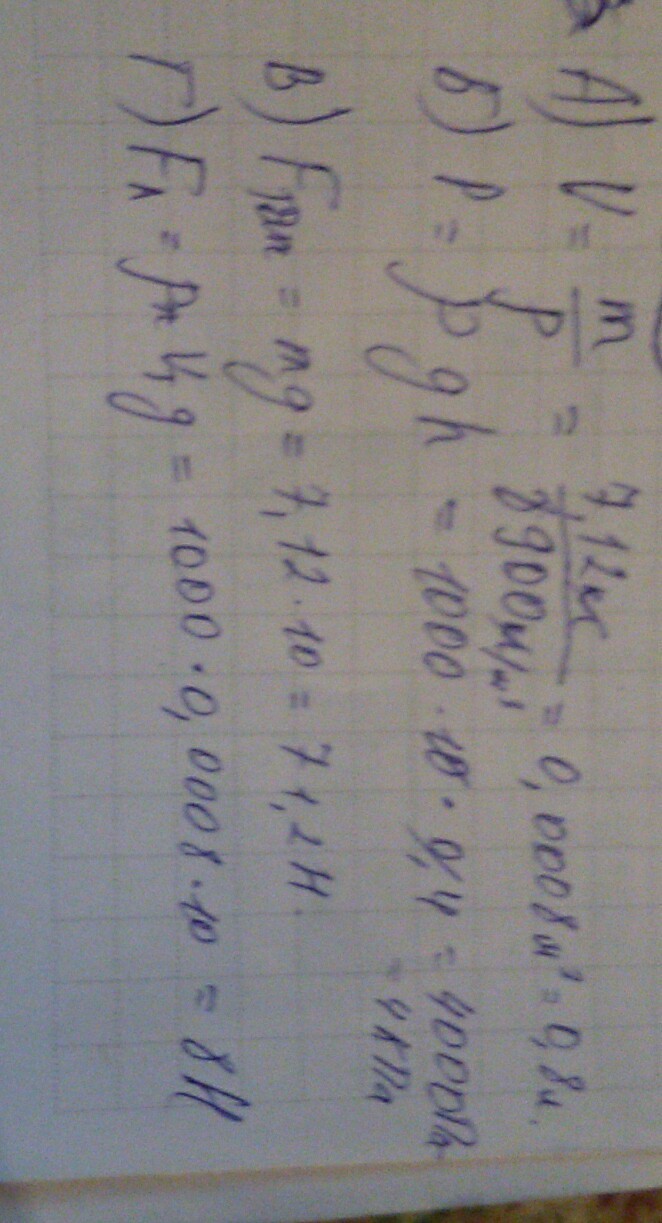 А) V = m/ρ = 7,12кг/8900кг/м³ = 0,0008м³ = 0,8л.
Б) P = ρgh = 1000 · 10 · 0,4 = 4000Па
= 4кПа
В) Fтяж = mg = 7,12 · 10 = 71,2Н.
Г) FА = ρж Vт g = 1000 · 0,0008 · 10 = 8Н